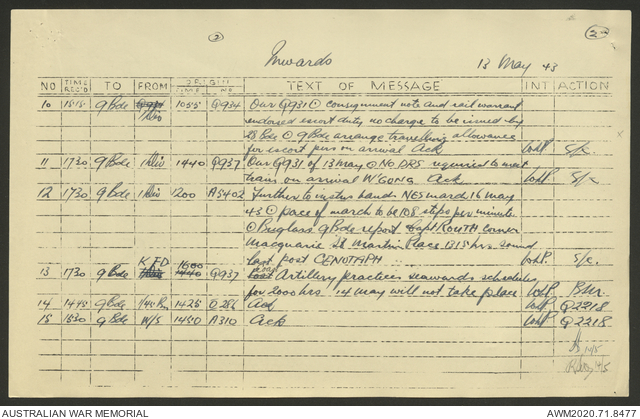 2
2
Inwards 13 May 43
NO TIME REC'D TO FROM ORIGIN TIME NO TEXT OF MESSAGE INT ACTION
10 1515 9 Bde 1 Div 1055 Q934 Our Q931 ⊙ consignment note and rail warrant
endorsed escort duty no charge to be issued by
28 Bde ⊙ 9 Bde arrange travelling allowance
for escort pers on arrival Ack
11 1730 9 Bde 1 Div 1440 Q937 Our Q931 of 13 May ⊙ No DRS required to meet
trains on arrival W'GONG Ack
12 1730 9 Bde 1 Div 1200 AS402 Further to bands march 16 May
43 ⊙ pace of march to be 108 steps per minute
⊙ Buglars 9 Bde report Capt ROUTH corner
Macquarie St Martin Place 1315 hrs sound
last post CENOTAPH
13 1730 9 Bde K FD 1600 Q937 Artillery practices seawards
for 2000 hrs 14 May will not take place B.M.
14 1445 9 Bde 1425 Q286 Ack Q2218
15 1530 9 Bde W/S 1450 A310 Ack Q2218
AUSTRALIAN WAR MEMORIAL AWM2020.71.8477